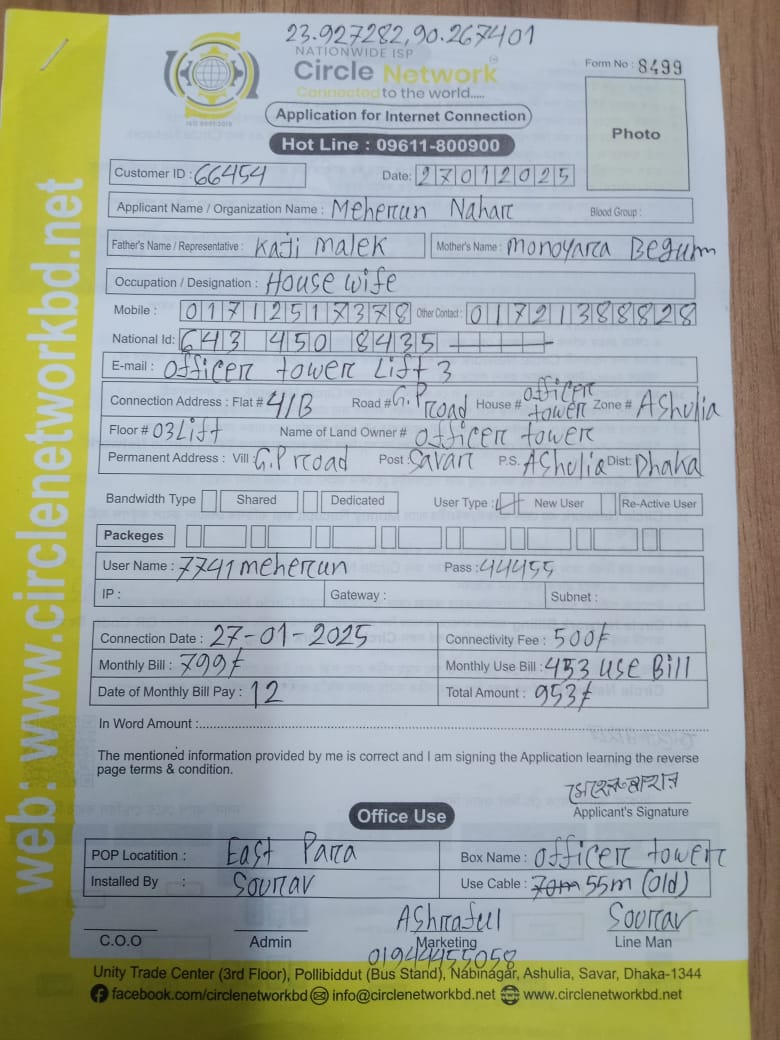 23.927282,90.267401
NATIONWIDE ISP
Circle Network
Connected to the world.....
ISO 9001:2015
Form No : 8499
Application for Internet Connection
Photo
Hot Line : 09611-800900
Customer ID : 66454 Date: 27012025
Applicant Name / Organization Name : Meherun Nahar Blood Group :
Father's Name / Representative : Kaji Malek Mother's Name : Monoyara Begum
Occupation / Designation : House wife
Mobile : 01712517378 Other Contact : 01721388828
National Id: 643 450 8435
E-mail : officer tower Lift 3
Connection Address : Flat # 4/B Road # G.P road House # officer tower Zone # AShulia
Floor # 03Lift Name of Land Owner # officer tower
Permanent Address : Vill G.P road Post : Savar P.S. AShulia Dist: Dhaka
Bandwidth Type Shared Dedicated User Type : New User Re-Active User
Packeges
User Name : 7741meherun Pass : 44455
IP : Gateway : Subnet :
Connection Date : 27-01-2025 Connectivity Fee : 500/
Monthly Bill : 799/ Monthly Use Bill : 453 USE Bill
Date of Monthly Bill Pay : 12 Total Amount : 953/
In Word Amount :
The mentioned information provided by me is correct and I am signing the Application learning the reverse
page terms & condition.
Applicant's Signature
Office Use
POP Locatition : East Para Box Name : officer tower
Installed By : Sourav Use Cable : 70m 55m (old)
Ashraful Sourav
C.O.O Admin Marketing Line Man
01944455058
Unity Trade Center (3rd Floor), Pollibiddut (Bus Stand), Nabinagar, Ashulia, Savar, Dhaka-1344
facebook.com/circlenetworkbd info@circlenetworkbd.net www.circlenetworkbd.net
web: www.circlenetworkbd.net